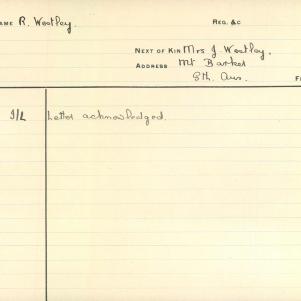 AME R. Westley. REG. &C
NEXT OF KIN Mrs J. Westley.
ADDRESS Mt Barker
Sth. Aus. F
I/L Letter acknowledged.